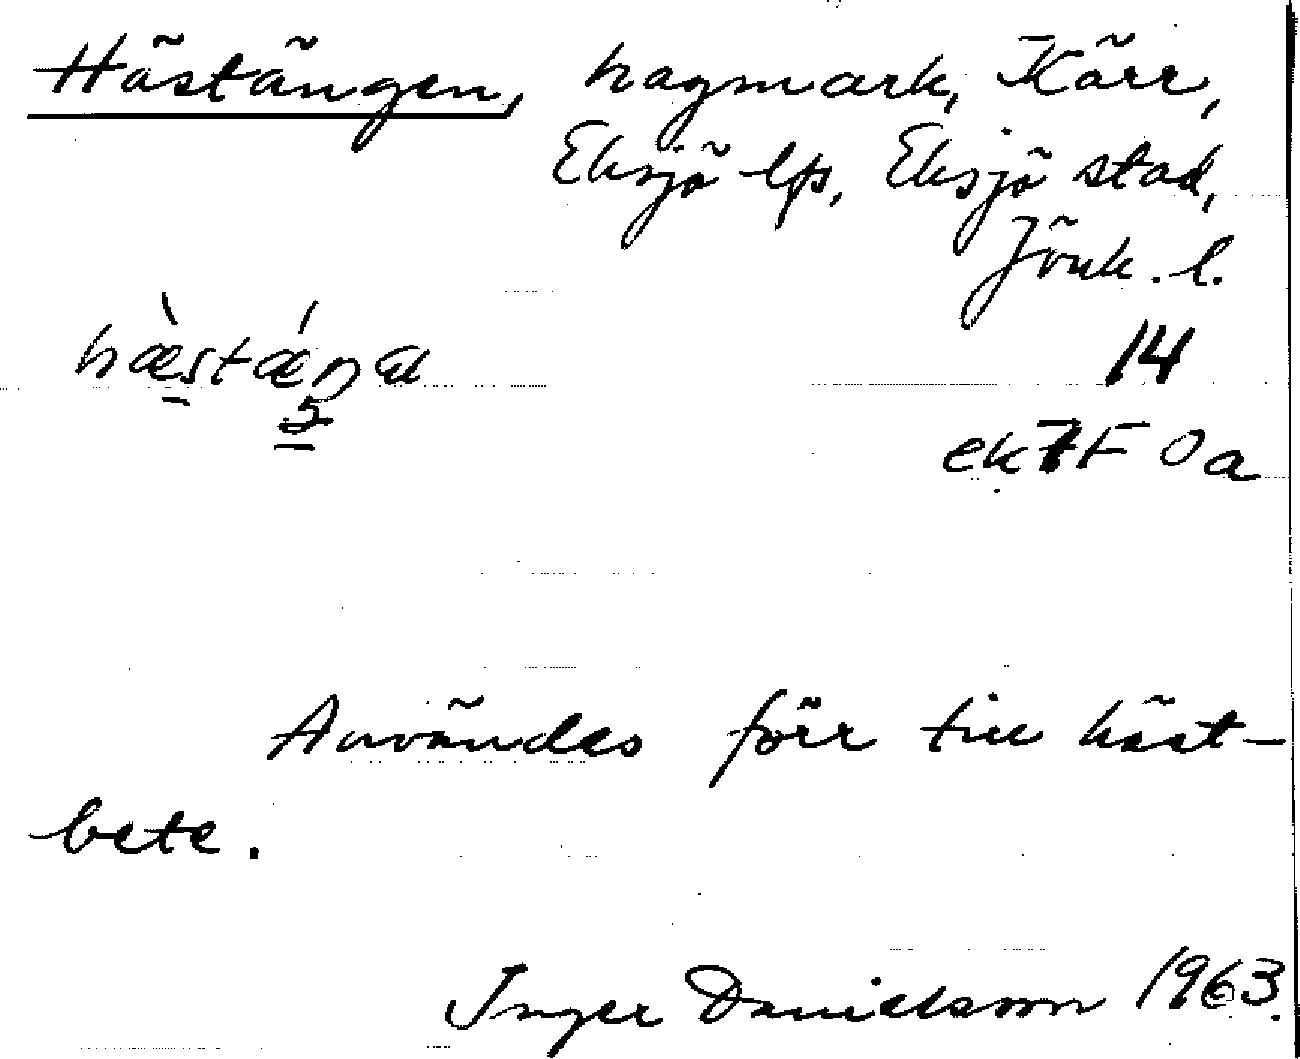 Hästängen, hagmark, Kärr,
Eksjö lfs, Eksjö stad,
Jönk. l.
hæ̀stǽŋa
5
14
ek7F 0a
Användes förr till häst-
bete.
Inger Danielsson 1963.